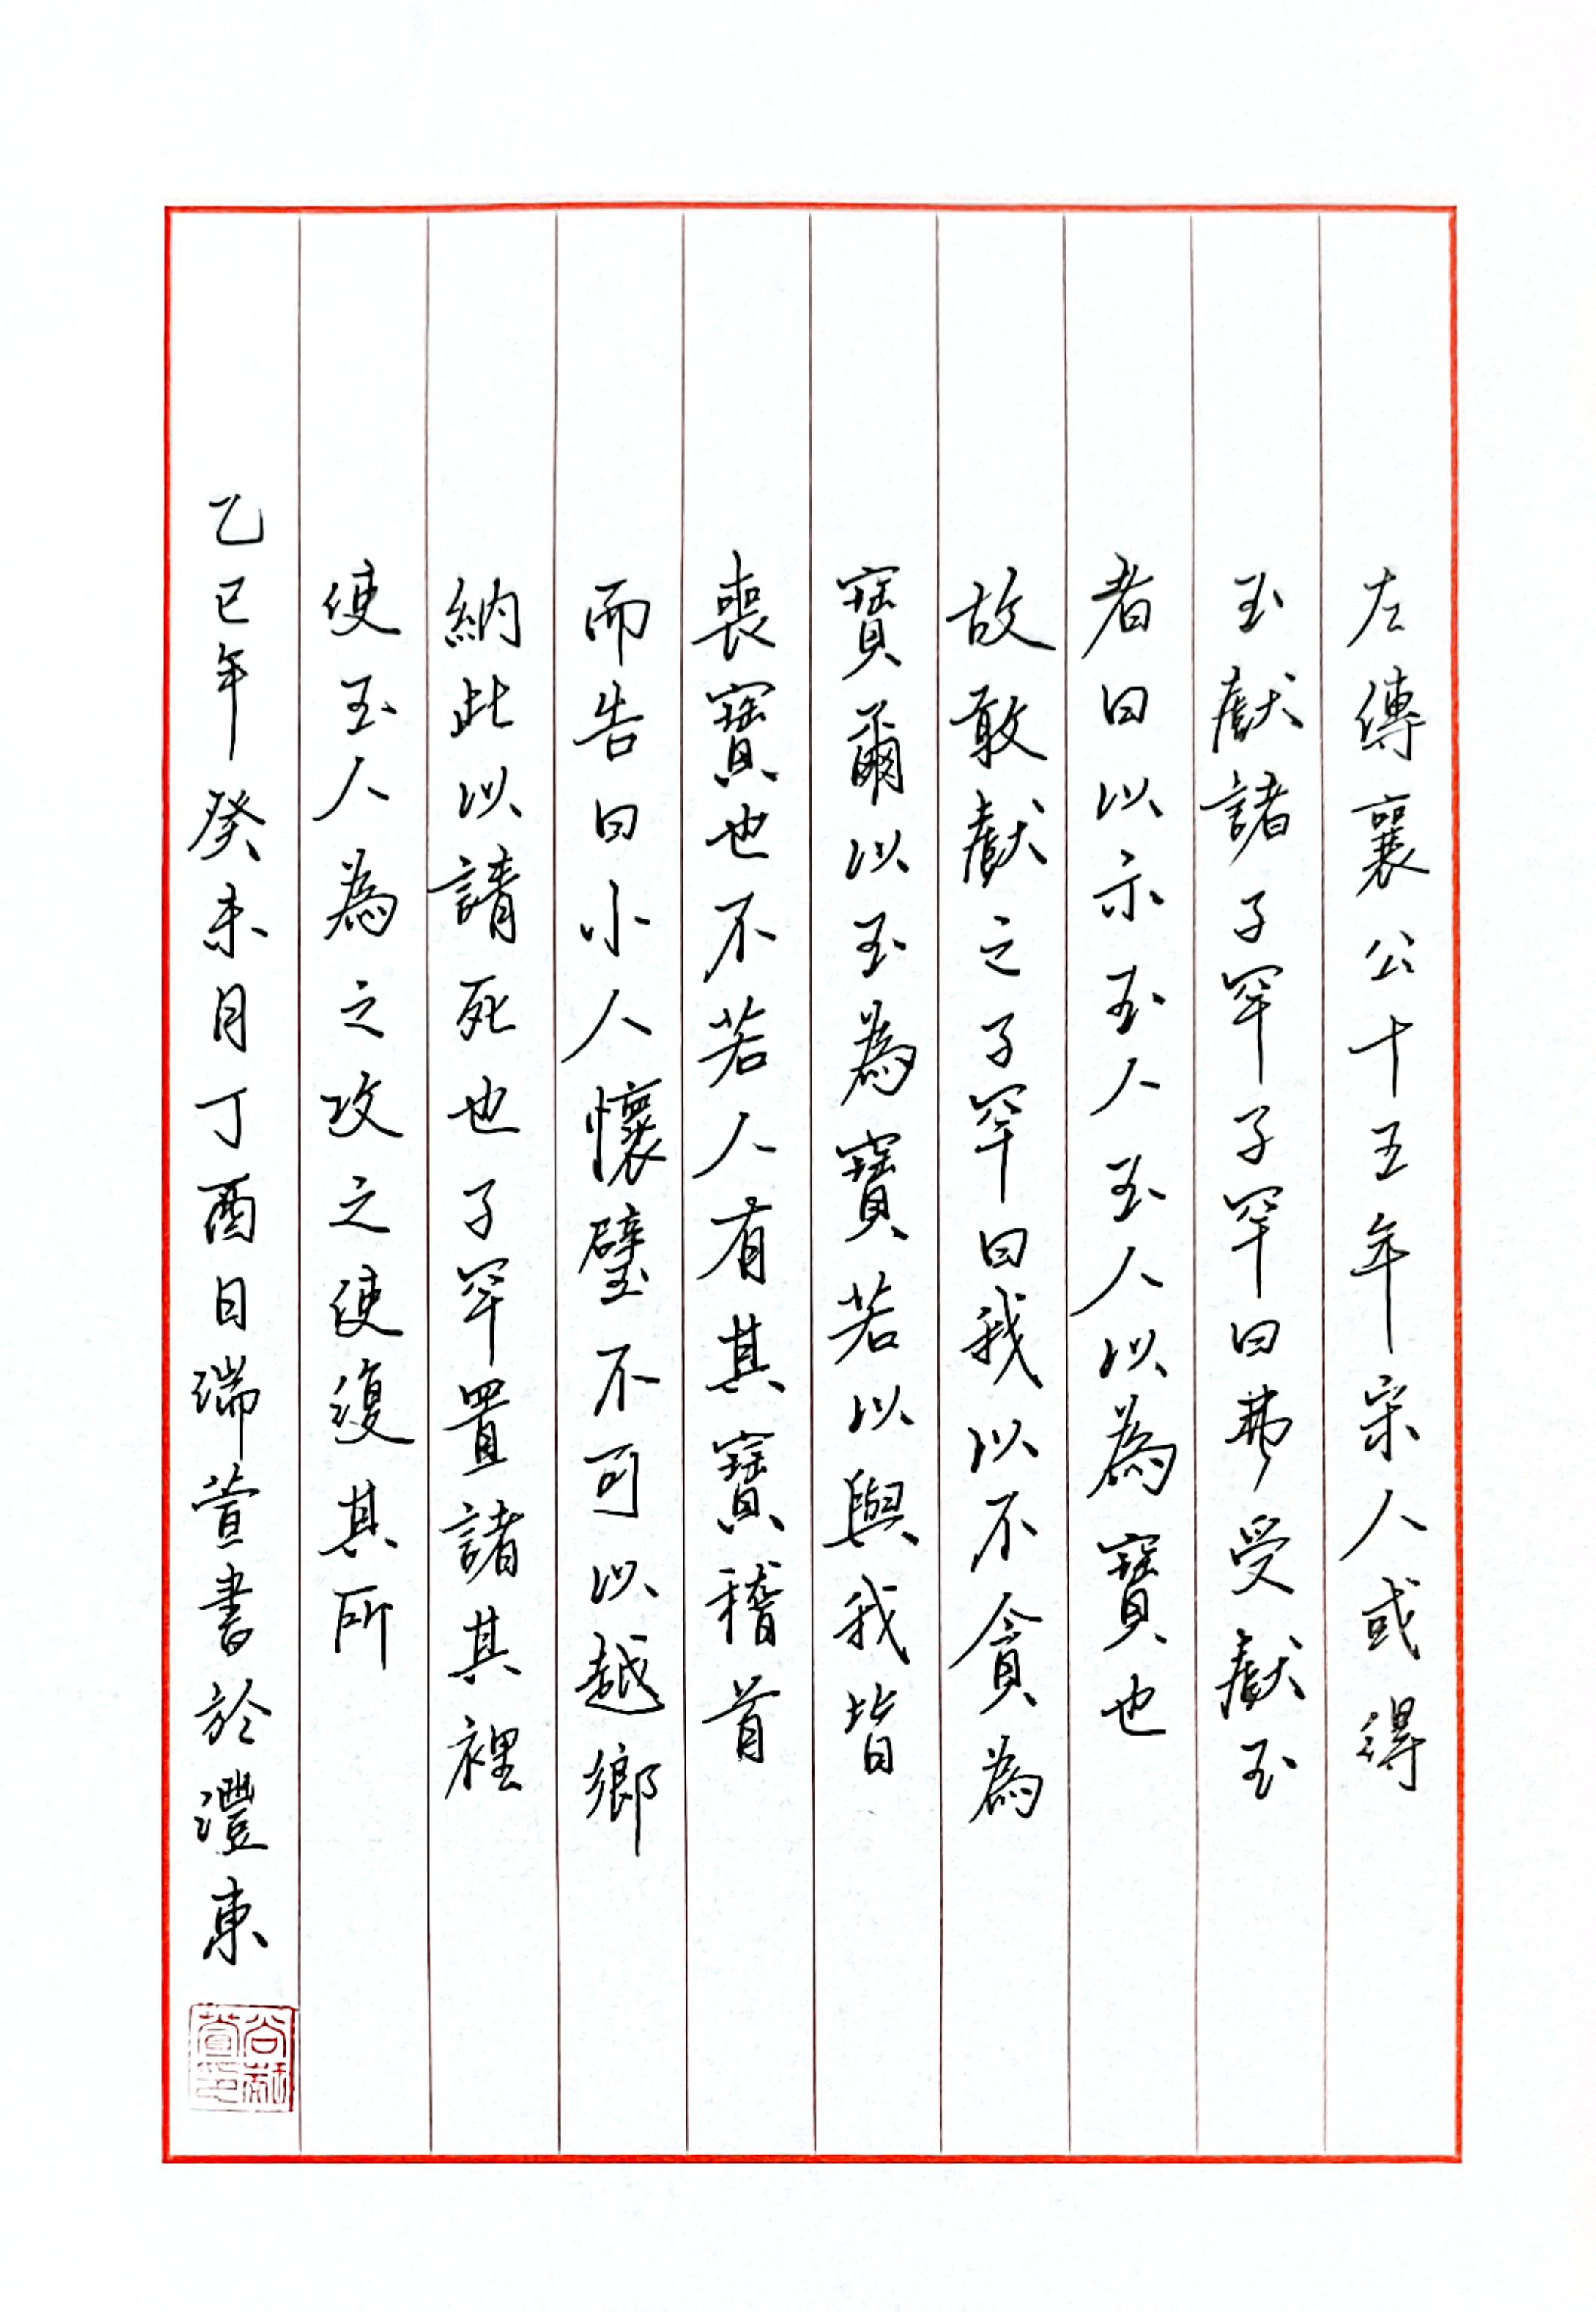 左傳襄公十五年宋人或得
玉獻諸子罕子罕曰弗受獻玉
者曰以示玉人玉人以為寶也
故敢獻之子罕曰我以不貪為
寶爾以玉為寶若以與我皆
喪寶也不若人有其寶稽首
而告曰小人懷璧不可以越鄉
納此以請死也子罕置諸其裡
使玉人為之攻之使復其所
乙巳年癸未月丁酉日瑞萱書於灃東